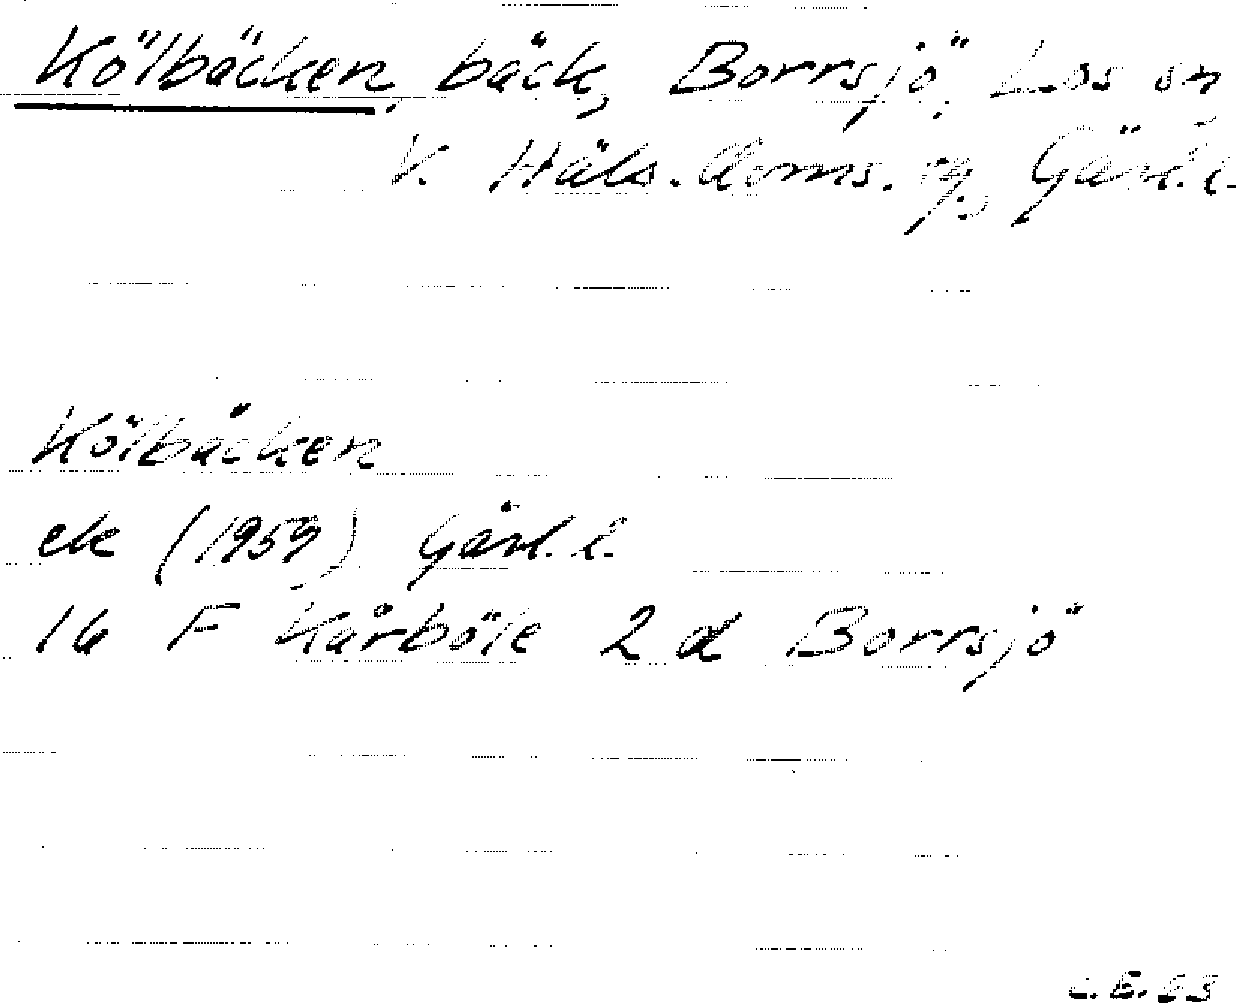 Kölbäcken, bäck, Borrsjö, Los sn,
V. Häls. doms. sg., Gävl. l.
Kölbäcken
ek (1959) Gävl. l.
16 F Kårböle 2 d Borrsjö
C.E. 63